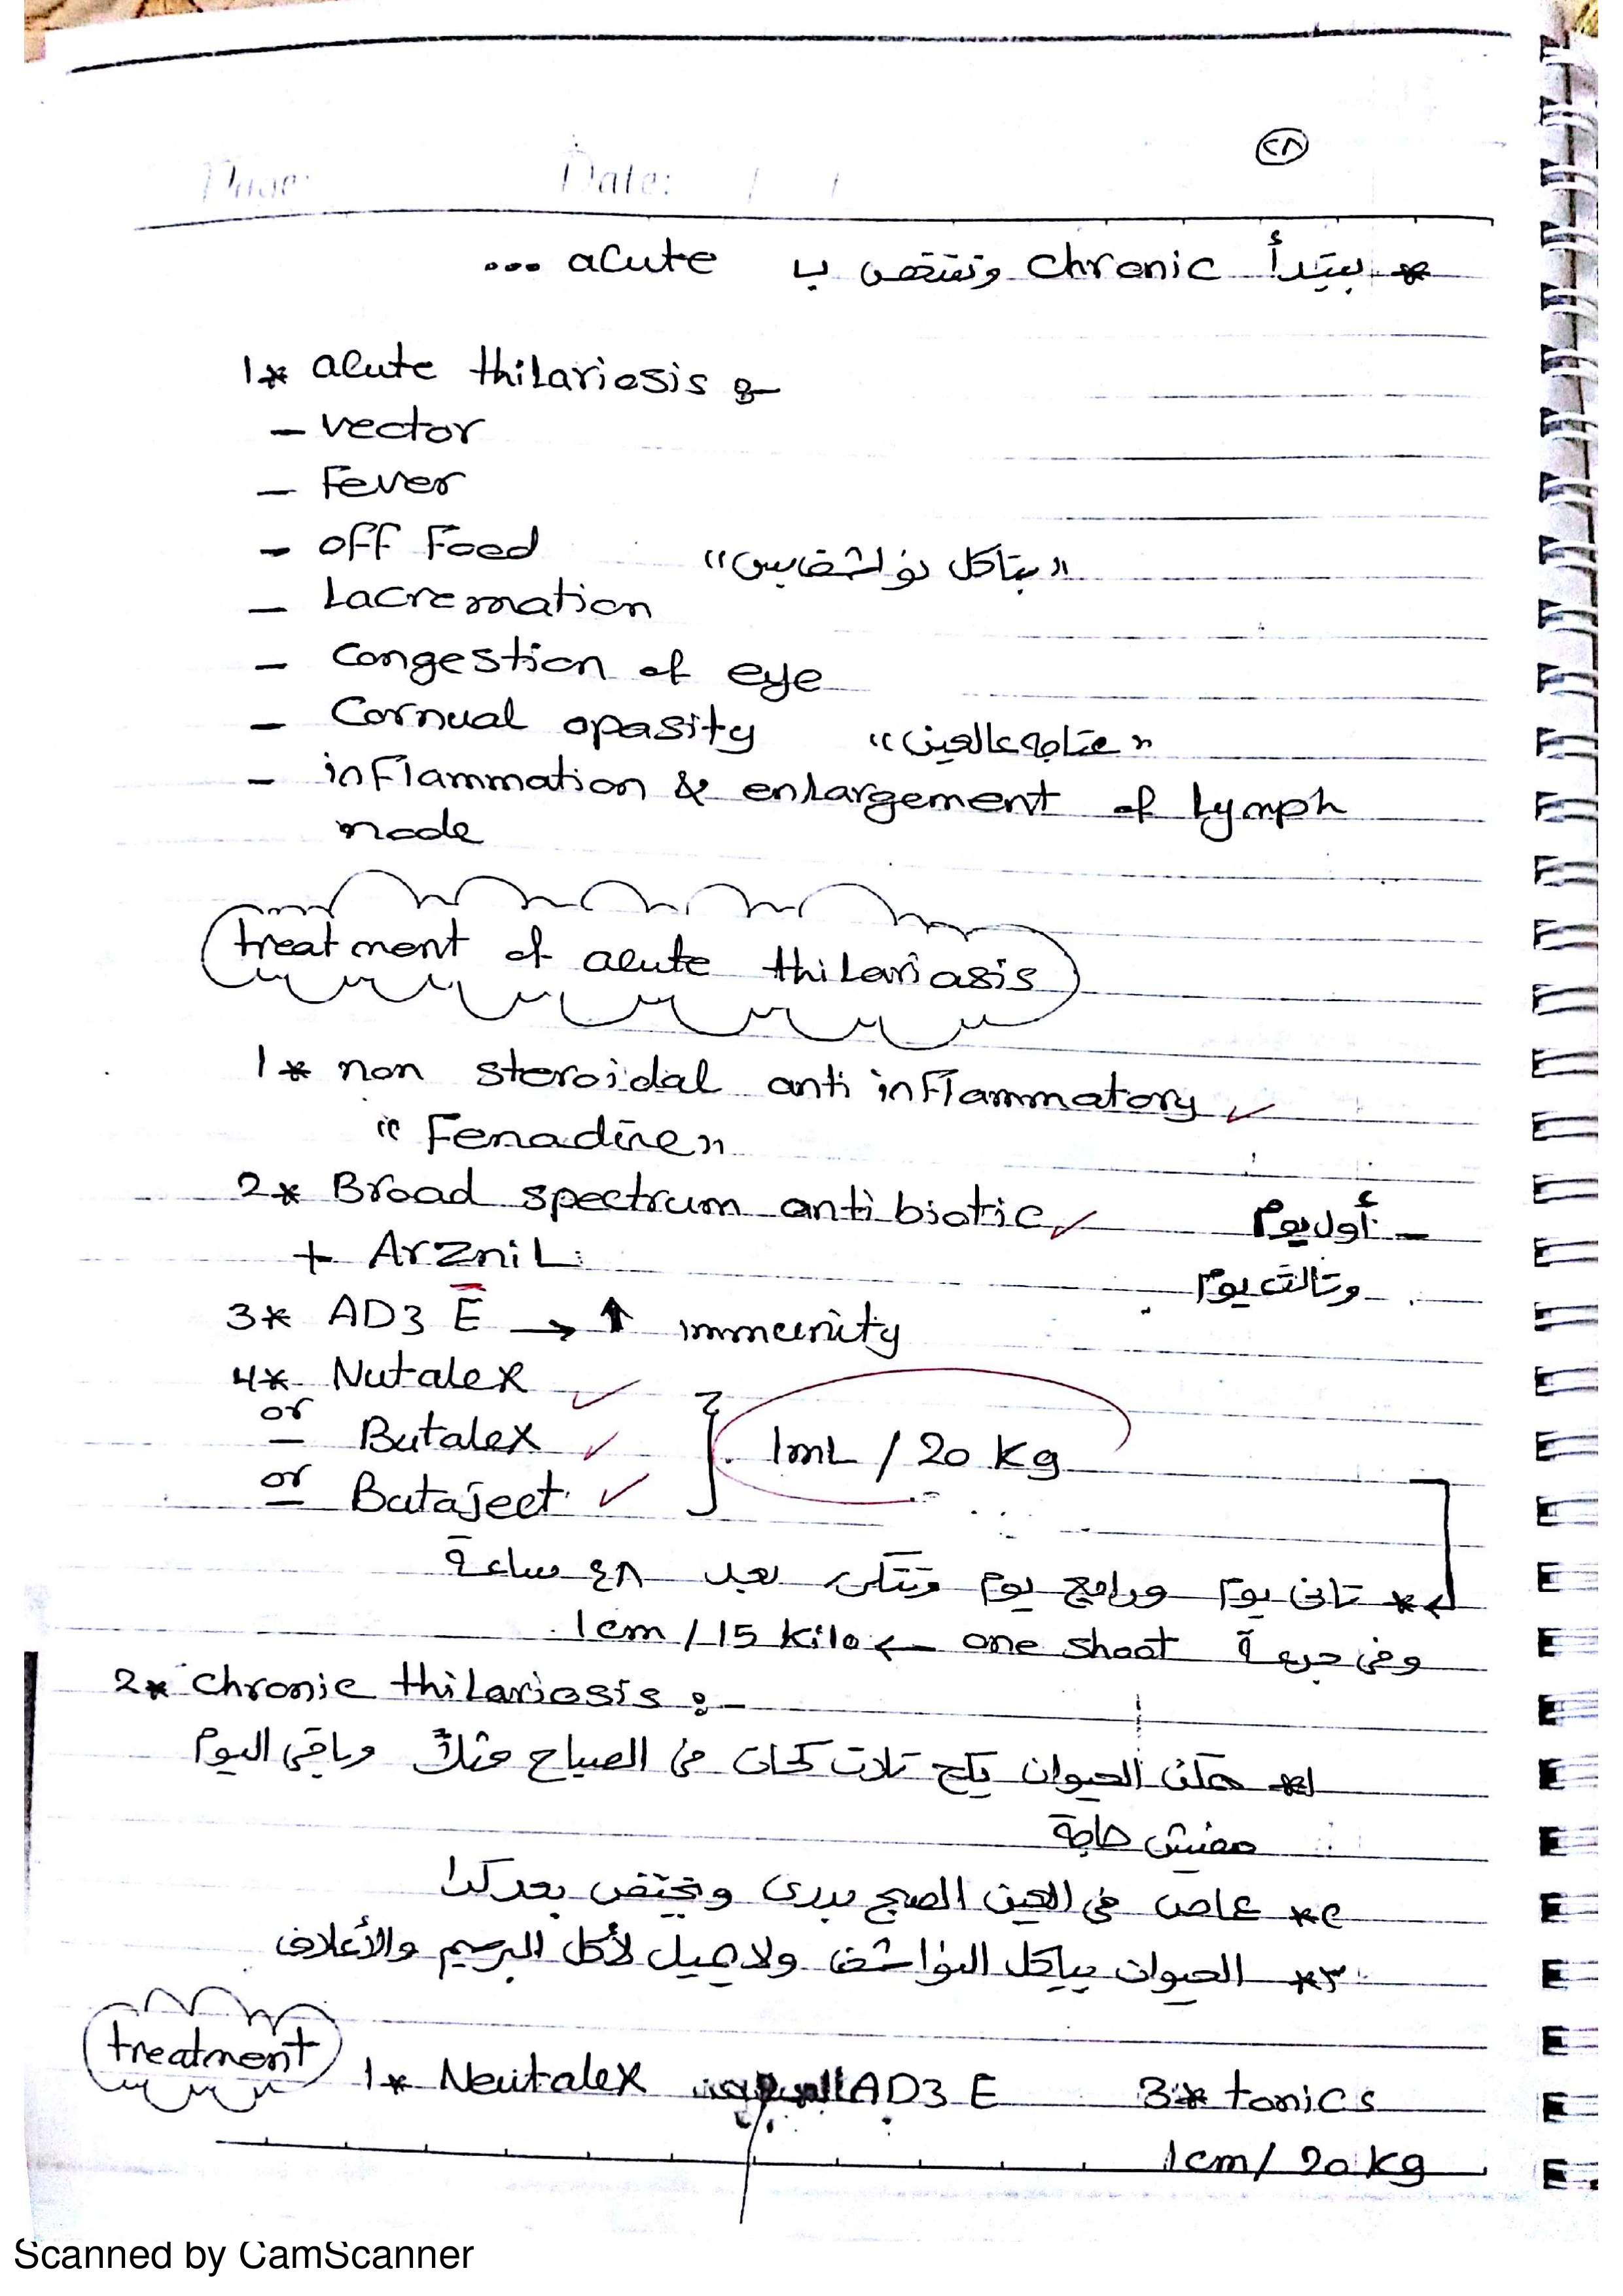 ٢٨
Page: Date: / /
* بيتدأ chronic وتنتهى ب acute ...
1* acute thilariosis :-
- vector
- Fever
- off Food "بتاكل نواشف بس"
- Lacremation
- Congestion of eye
- Cornual opasity "عتامه عالعين"
- inflammation & enlargement of Lymph
node
treatment of acute thilariasis
1* non steroidal anti inflammatory ✓
"Fenadine"
2* Broad spectrum antibiotic ✓ - أول يوم
+ ArzniL وتالت يوم
3* AD3 E → ↑ immunity
4* Nutalex ✓
or Butalex ✓ 1mL / 20 Kg
or Butaject ✓
* تانى يوم ورابع يوم وتتكرر بعد ٤٨ ساعة
وفى جرعة one shoot ← 1cm / 15 Kilo
2* chronic thilariosis :-
١* ممكن الحيوان يكح تلات كحات فى الصباح مثلاً وباقى اليوم
مفيش حاجة
٢* عماص فى العين الصبح بدرى ويختفى بعد كدا
٣* الحيوان بياكل النواشف ولا يميل لأكل البرسيم والأعلاف
treatment 1* Neutalex AD3 E 3* tonics
1cm / 20 kg
Scanned by CamScanner